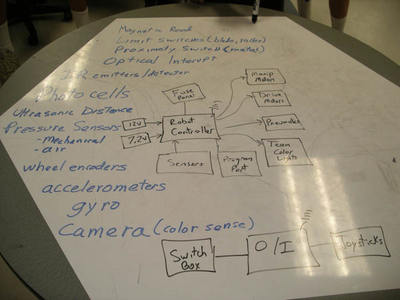 Magnetic Reed
Limit Switches (blade, roller)
Proximity Switch (metal)
Optical Interupt
IR emitters/detector
Photo cells
Ultrasonic Distance
Pressure Sensors
- Mechanical
- air
wheel encoders
accelerometers
gyro
Camera (color sense)
Fuse
Panel
12V
7.2V
Robot
Controller
Sensors
Program
Port
Manip
Motors
Drive
Motors
Pneumatics
Team
Color
Lights
Switch
Box
O/I
Joysticks